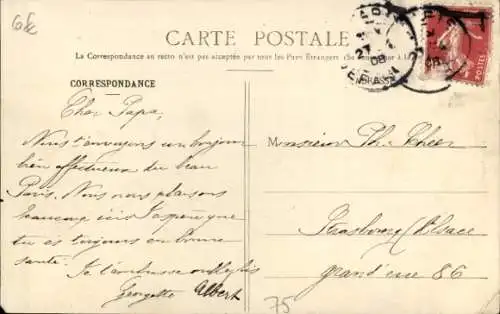 6 fc
CARTE POSTALE
La Correspondance au recto n'est pas acceptée par tous les Pays Étrangers (Se
CORRESPONDANCE
Cher Papa,
Nous t'envoyons un bonjour
bien affectueux du beau
Paris. Nous nous plaisons
beaucoup ici j'espère que
tu es toujours en bonne
santé.
Je t'embrasse
Georgette Albert
Monsieur Ph. Scheer
Strasbourg (Alsace
grand'rue 86
75
08
POSTES